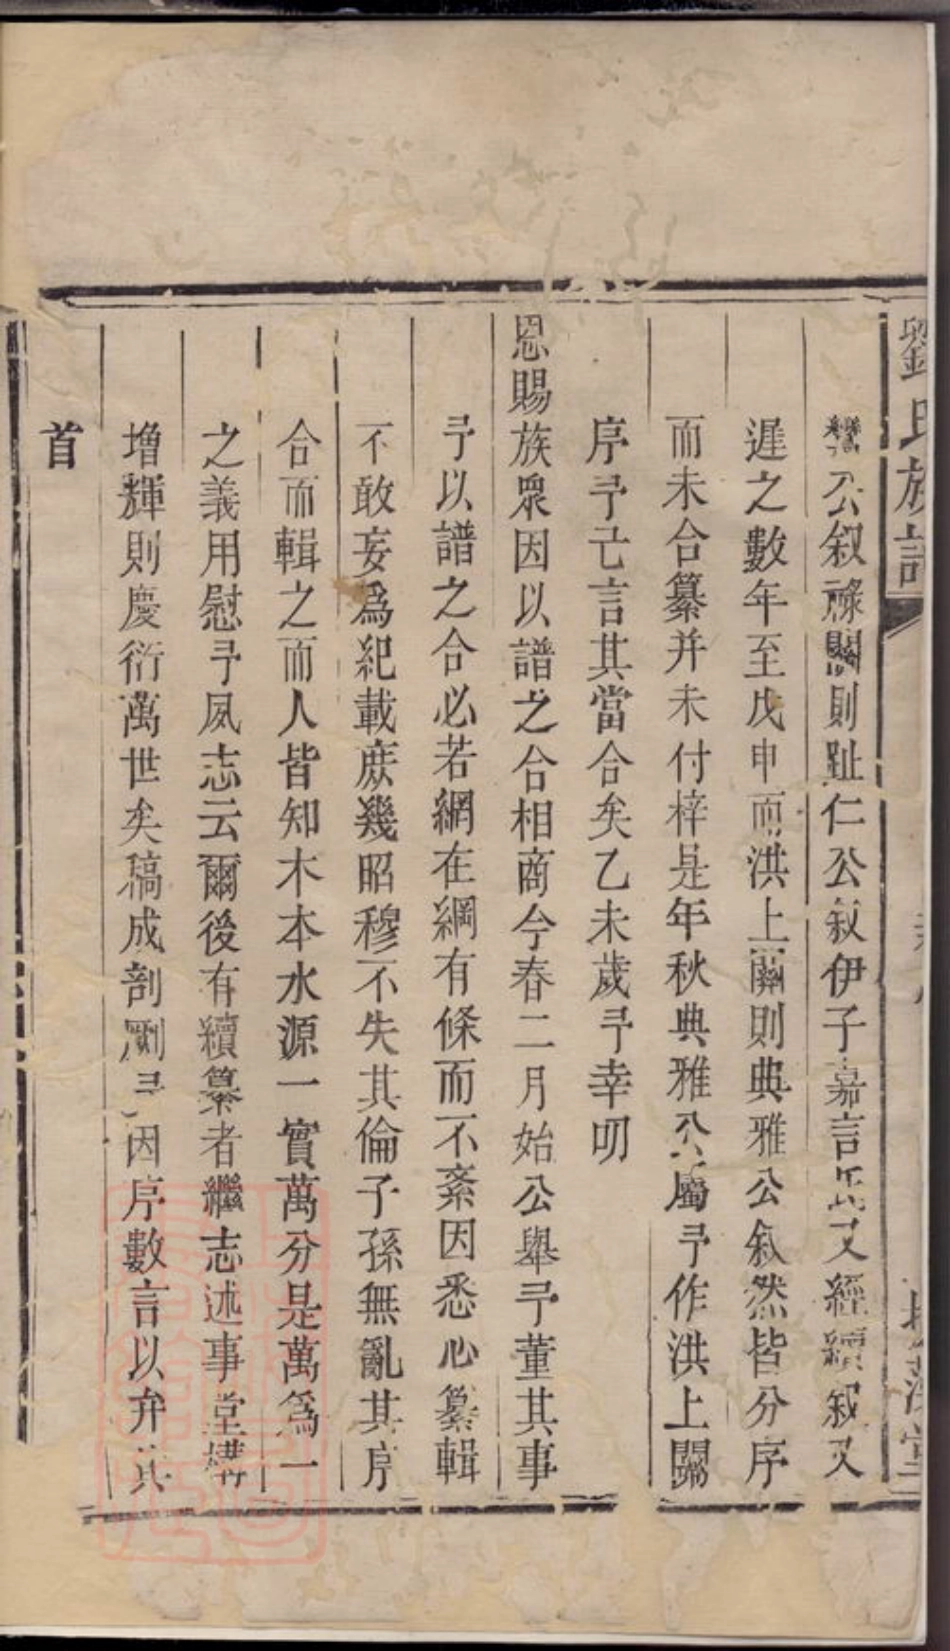 劉氏族譜
公叙祿鬮則趾仁公叙伊子嘉言氏又經續叙又
遲之數年至戊申而洪上鬮則典雅公叙然皆分序
而未合纂并未付梓是年秋典雅公屬予作洪上鬮
序予亡言其當合矣乙未歲予幸叨
恩賜族衆因以譜之合相商今春二月始公舉予董其事
予以譜之合必若網在綱有條而不紊因悉心纂輯
不敢妄爲紀載庶幾昭穆不失其倫子孫無亂其序
合而輯之而人皆知木本水源一實萬分是萬爲一
之義用慰予夙志云爾後有續纂者繼志述事堂構
增輝則慶衍萬世矣稿成剖劂予因序數言以弁其
首